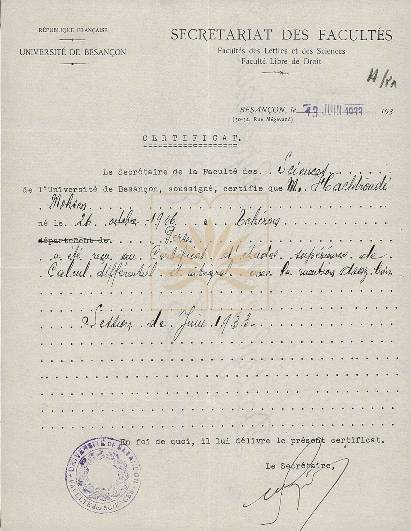 RÉPUBLIQUE FRANÇAISE
UNIVERSITÉ DE BESANÇON
SECRÉTARIAT DES FACULTÉS
Facultés des Lettres et des Sciences
Faculté Libre de Droit
BESANÇON, le 19 JUIN 1933 193
(30-32, Rue Mégevand)
CERTIFICAT.
Le Secrétaire de la Faculté des Sciences
de l'Université de Besançon, soussigné, certifie que M. Hachtroudi
Mohsen
né le 26 octobre 1906 à Téhéran
département de Perse
a été reçu au Certificat d'études supérieures de
Calcul différentiel et intégral avec la mention assez bien
Session de Juin 1933
En foi de quoi, il lui délivre le présent certificat.
Le Secrétaire,
UNIVERSITÉ DE BESANÇON
FACULTÉ DES SCIENCES